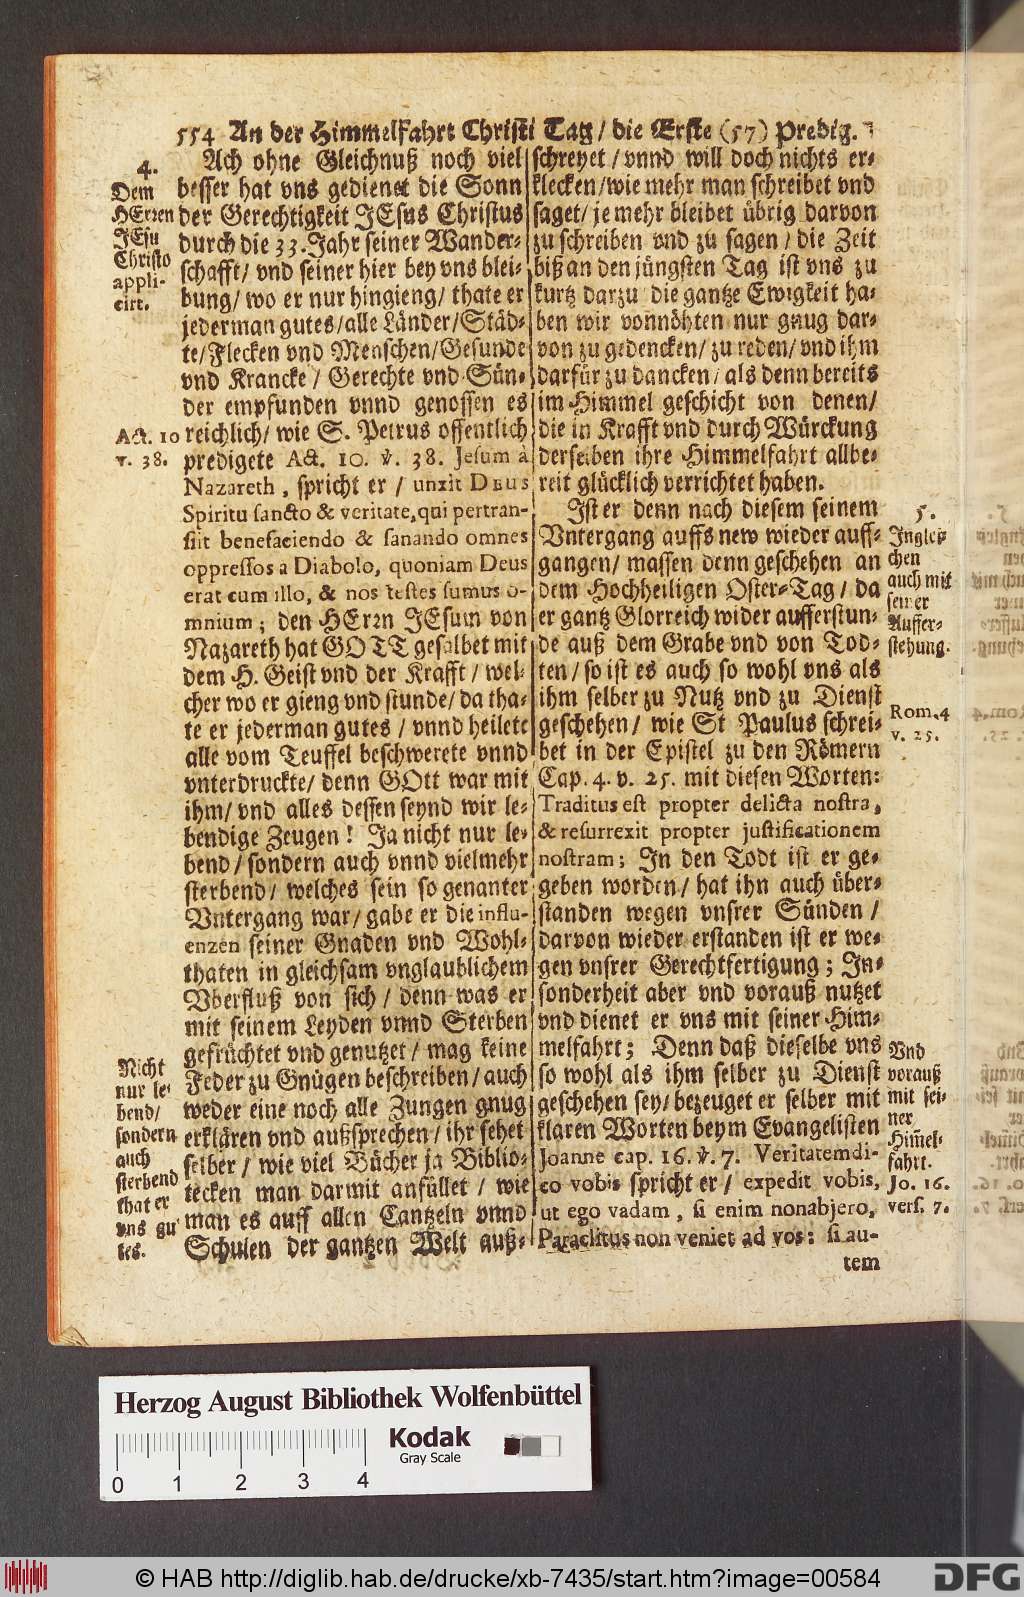 554 An der Himmelfahrt Christi Tag / die Erste (57) Predig.
4.
Dem
HErren
JEsu
Christo
appli-
cirt.
Ach ohne Gleichnuß noch viel
besser hat vns gedienet die Sonn
der Gerechtigkeit JEsus Christus
durch die 33. Jahr seiner Wander-
schafft / vnd seiner hier bey vns blei-
bung / wo er nur hingieng / thate er
jederman gutes / alle Länder / Städ-
te / Flecken vnd Menschen / Gesunde
vnd Krancke / Gerechte vnd Sün-
der empfunden vnnd genossen es
Act. 10
v. 38.
reichlich / wie S. Petrus offentlich
predigete Act. 10. v. 38. Jesum à
Nazareth, spricht er / unxit DEUS
Spiritu sancto & veritate, qui pertran-
siit benefaciendo & sanando omnes
oppressos a Diabolo, quoniam Deus
erat cum illo, & nos testes sumus o-
mnium; den HErrn JEsum von
Nazareth hat GOTT gesalbet mit
dem H. Geist vnd der Krafft / wel-
cher wo er gieng vnd stunde / da tha-
te er jederman gutes / vnnd heilete
alle vom Teuffel beschwerete vnnd
vnterdruckte / denn GOtt war mit
ihm / vnd alles dessen seynd wir le-
bendige Zeugen! Ja nicht nur le-
bend / sondern auch vnnd vielmehr
sterbend / welches sein so genanter
Vntergang war / gabe er die influ-
enzen seiner Gnaden vnd Wohl-
thaten in gleichsam vnglaublichem
Vberfluß von sich / denn was er
mit seinem Leyden vnnd Sterben
gefrüchtet vnd genutzet / mag keine
Nicht
nur le-
bend /
sondern
auch
sterbend
that er
vns gu-
tes.
Feder zu Gnügen beschreiben / auch
weder eine noch alle Zungen gnug
erklären vnd außsprechen / ihr sehet
selber / wie viel Bücher ja Biblio-
tecken man darmit anfüllet / wie
man es auff allen Cantzeln vnnd
Schulen der gantzen Welt auß-
schreyet / vnnd will doch nichts er-
klecken / wie mehr man schreibet vnd
saget / je mehr bleibet übrig darvon
zu schreiben vnd zu sagen / die Zeit
biß an den jüngsten Tag ist vns zu
kurtz darzu die gantze Ewigkeit ha-
ben wir vonnöhten nur gnug dar-
von zu gedencken / zu reden / vnd ihm
darfür zu dancken / als denn bereits
im Himmel geschicht von denen /
die in Krafft vnd durch Würckung
derselben ihre Himmelfahrt allbe-
reit glücklich verrichtet haben.
5.
Ingleis
chen
auch mit
seiner
Auffer-
stehung.
Ist er denn nach diesem seinem
Vntergang auffs new wieder auff-
gangen / massen denn geschehen an
dem Hochheiligen Oster-Tag / da
er gantz Glorreich wider aufferstun-
de auß dem Grabe vnd von Tod-
ten / so ist es auch so wohl vns als
ihm selber zu Nutz vnd zu Dienst
Rom. 4
v. 25.
geschehen / wie St Paulus schrei-
bet in der Epistel zu den Römern
Cap. 4. v. 25. mit diesen Worten:
Traditus est propter delicta nostra,
& resurrexit propter justificationem
nostram; In den Todt ist er ge-
geben worden / hat ihn auch über-
standen wegen vnsrer Sünden /
darvon wieder erstanden ist er we-
gen vnsrer Gerechtfertigung; In-
sonderheit aber vnd vorauß nutzet
vnd dienet er vns mit seiner Him-
melfahrt; Denn daß dieselbe vns
Vnd
vorauß
mit sei-
ner
Him̃el-
fahrt.
Jo. 16.
vers. 7.
so wohl als ihm selber zu Dienst
geschehen sey / bezeuget er selber mit
klaren Worten beym Evangelisten
Joanne cap. 16. v. 7. Veritatem di-
co vobis spricht er / expedit vobis,
ut ego vadam, si enim non abjero,
Paraclitus non veniet ad vos: si au-
tem
Herzog August Bibliothek Wolfenbüttel
Kodak
Gray Scale
0 1 2 3 4
© HAB http://diglib.hab.de/drucke/xb-7435/start.htm?image=00584
DFG